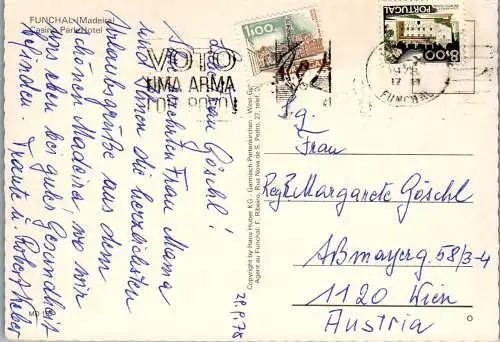 FUNCHAL (Madeira)
Casino Park Hotel
VOTO
UMA ARMA
DO POVO
1$00
PORTUGAL
8$00
1978
17 H
FUNCHAL
Liebe Frau Göschl!
Ihrer verehrten Frau Mama
u. Ihnen die herzlichsten
Urlaubsgrüße aus dem
schönen Madeira, wo wir
uns eben bei guter Gesundheit
befinden.
Traute u. Robert Weber
29.9.78
MD
Copyright by Hans Huber KG - Garmisch-Partenkirchen
Agent au Funchal: F. Ribeiro, Rua Nova de S. Pedro, 27, telef.
S. g.
Frau
Margarete Göschl
Aßmayerg. 58/3-4
1120 Wien
Austria